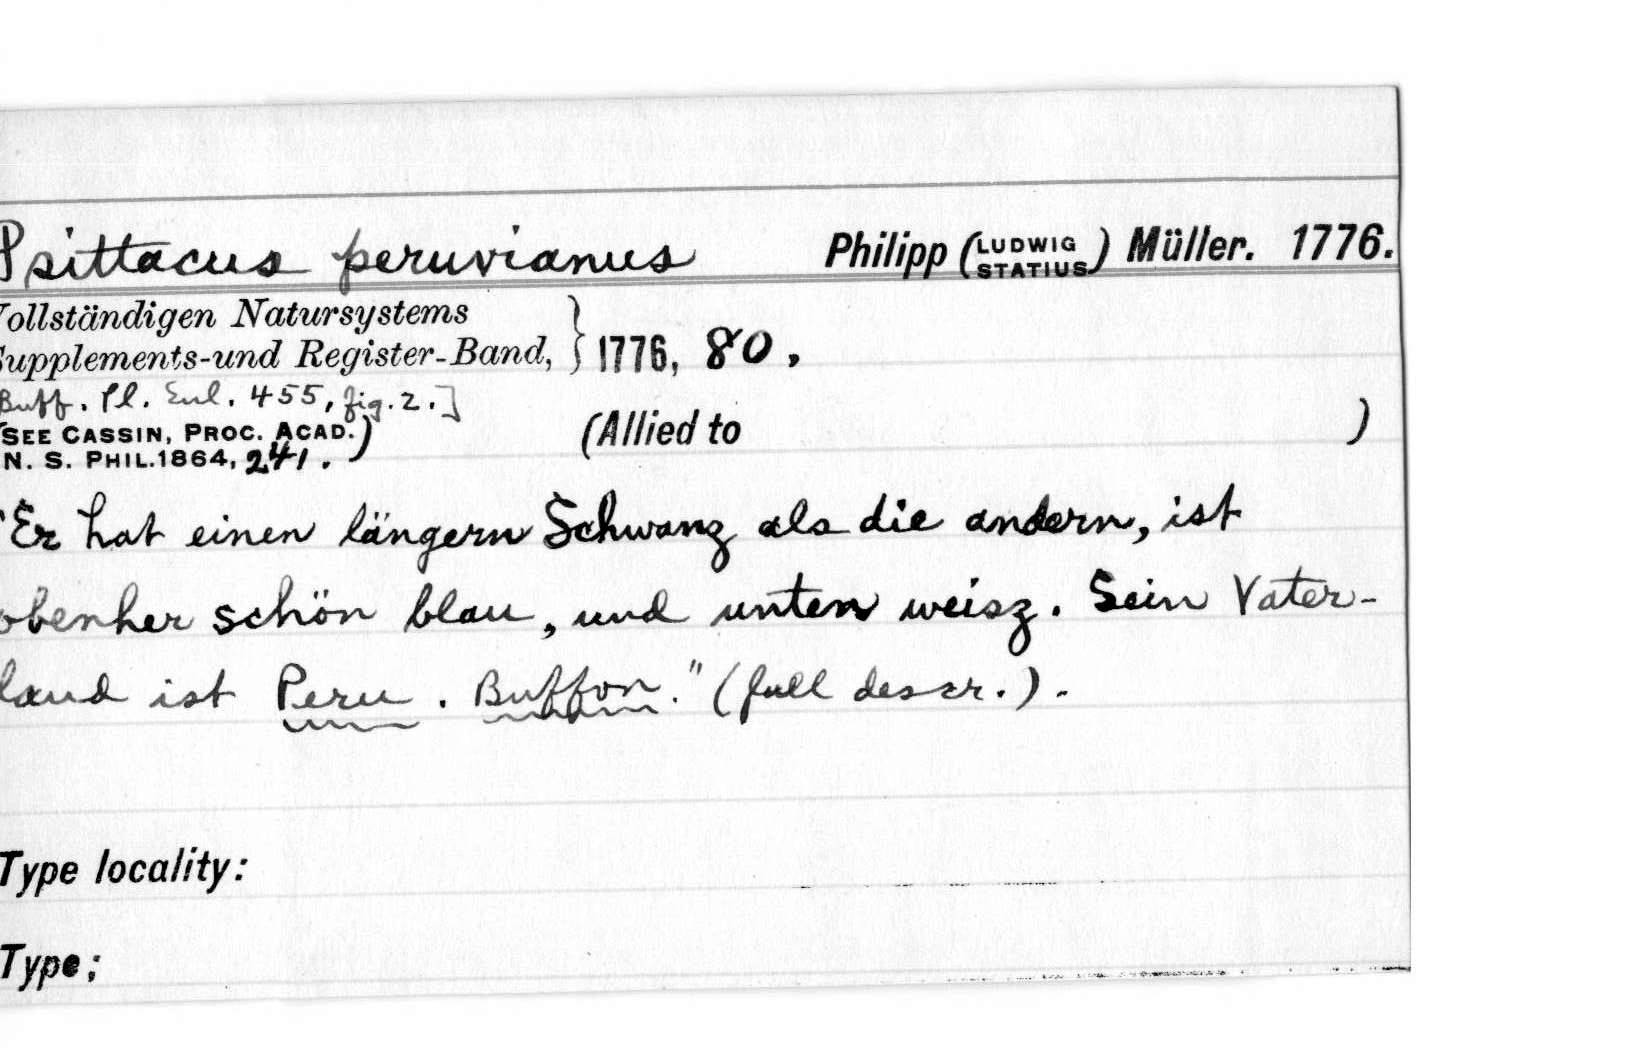 Psittacus peruvianus Philipp (LUDWIG STATIUS) Müller. 1776.
Vollständigen Natursystems
Supplements-und Register-Band, } 1776, 80.
Buff. Pl. Enl. 455, fig. 2.]
(SEE CASSIN, PROC. ACAD.
N. S. PHIL. 1864, 241.) (Allied to )
"Er hat einen längern Schwanz als die andern, ist
obenher schön blau, und unten weisz. Sein Vater-
land ist Peru. Buffon." (full descr.).
Type locality:
Type;